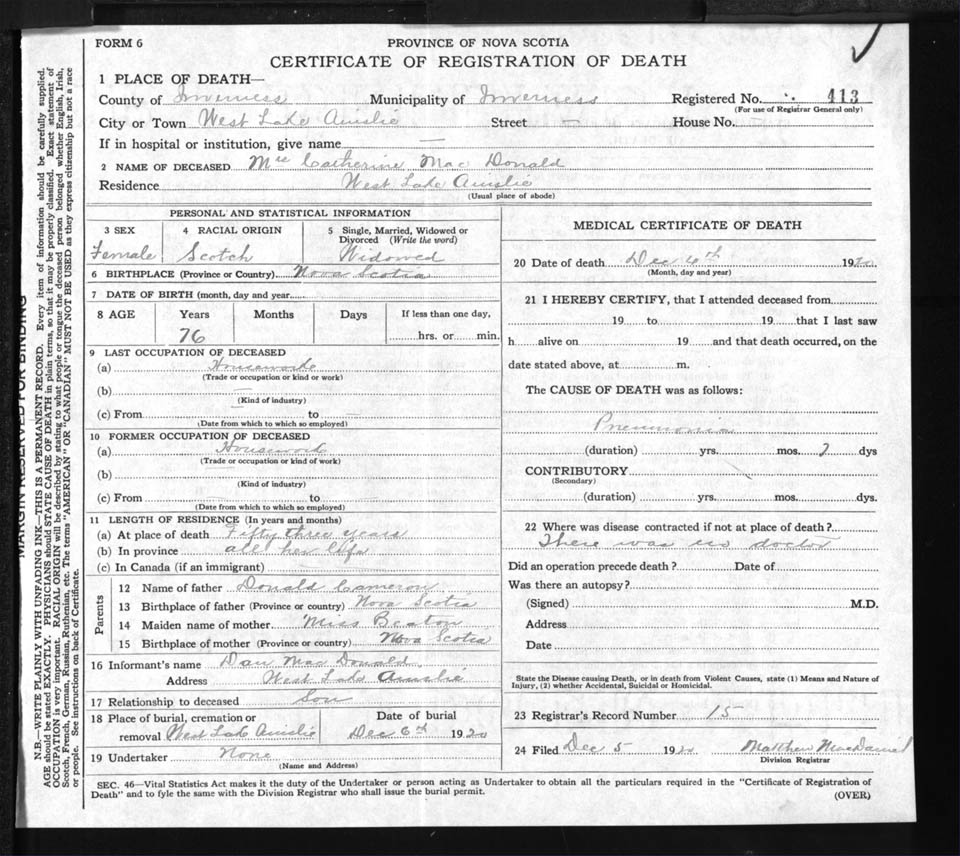 FORM 6
PROVINCE OF NOVA SCOTIA
CERTIFICATE OF REGISTRATION OF DEATH
1 PLACE OF DEATH—
County of Inverness Municipality of Inverness Registered No. 413
(For use of Registrar General only)
City or Town West Lake Ainslie Street — House No. —
If in hospital or institution, give name —
2 NAME OF DECEASED Mrs Catherine Mac Donald
Residence West Lake Ainslie
(Usual place of abode)
PERSONAL AND STATISTICAL INFORMATION
3 SEX 4 RACIAL ORIGIN 5 Single, Married, Widowed or
Divorced (Write the word)
Female Scotch Widowed
6 BIRTHPLACE (Province or Country) Nova Scotia
7 DATE OF BIRTH (month, day and year)
8 AGE Years Months Days If less than one day,
76 hrs. or min.
9 LAST OCCUPATION OF DECEASED
(a) Housework
(Trade or occupation or kind or work)
(b)
(Kind of industry)
(c) From to
(Date from which to which so employed)
10 FORMER OCCUPATION OF DECEASED
(a) Housework
(Trade or occupation or kind of work)
(b)
(Kind of industry)
(c) From to
(Date from which to which so employed)
11 LENGTH OF RESIDENCE (In years and months)
(a) At place of death Fifty three years
(b) In province all her life
(c) In Canada (if an immigrant)
Parents
12 Name of father Donald Cameron
13 Birthplace of father (Province or country) Nova Scotia
14 Maiden name of mother Miss Beaton
15 Birthplace of mother (Province or country) Nova Scotia
16 Informant's name Dan Mac Donald
Address West Lake Ainslie
17 Relationship to deceased Son
18 Place of burial, cremation or Date of burial
removal West Lake Ainslie Dec 6th 1920
19 Undertaker None
(Name and Address)
MEDICAL CERTIFICATE OF DEATH
20 Date of death Dec 4th 1920
(Month, day and year)
21 I HEREBY CERTIFY, that I attended deceased from
19 to 19 that I last saw
h alive on 19 and that death occurred, on the
date stated above, at m.
The CAUSE OF DEATH was as follows:
Pneumonia
(duration) yrs. mos. 7 dys
CONTRIBUTORY
(Secondary)
(duration) yrs. mos. dys.
22 Where was disease contracted if not at place of death?
There was no doctor
Did an operation precede death? Date of
Was there an autopsy?
(Signed) M.D.
Address
Date
State the Disease causing Death, or in death from Violent Causes, state (1) Means and Nature of
Injury, (2) whether Accidental, Suicidal or Homicidal.
23 Registrar's Record Number 15
24 Filed Dec 5 1920 Matthew MacDaniel
Division Registrar
SEC. 46—Vital Statistics Act makes it the duty of the Undertaker or person acting as Undertaker to obtain all the particulars required in the "Certificate of Registration of
Death" and to fyle the same with the Division Registrar who shall issue the burial permit.
(OVER)
MARGIN RESERVED FOR BINDING
N.B.—WRITE PLAINLY WITH UNFADING INK—THIS IS A PERMANENT RECORD. Every item of information should be carefully supplied.
AGE should be stated EXACTLY. PHYSICIANS should STATE CAUSE OF DEATH in plain terms, so that it may be properly classified. Exact statement of
OCCUPATION is very important. RACIAL ORIGIN will be described by stating to what people or tongue the deceased person belonged, whether English, Irish,
Scotch, French, German, Russian, Ruthenian, etc. The terms "AMERICAN" OR "CANADIAN" MUST NOT BE USED as they express citizenship but not a race
or people. See instructions on back of Certificate.